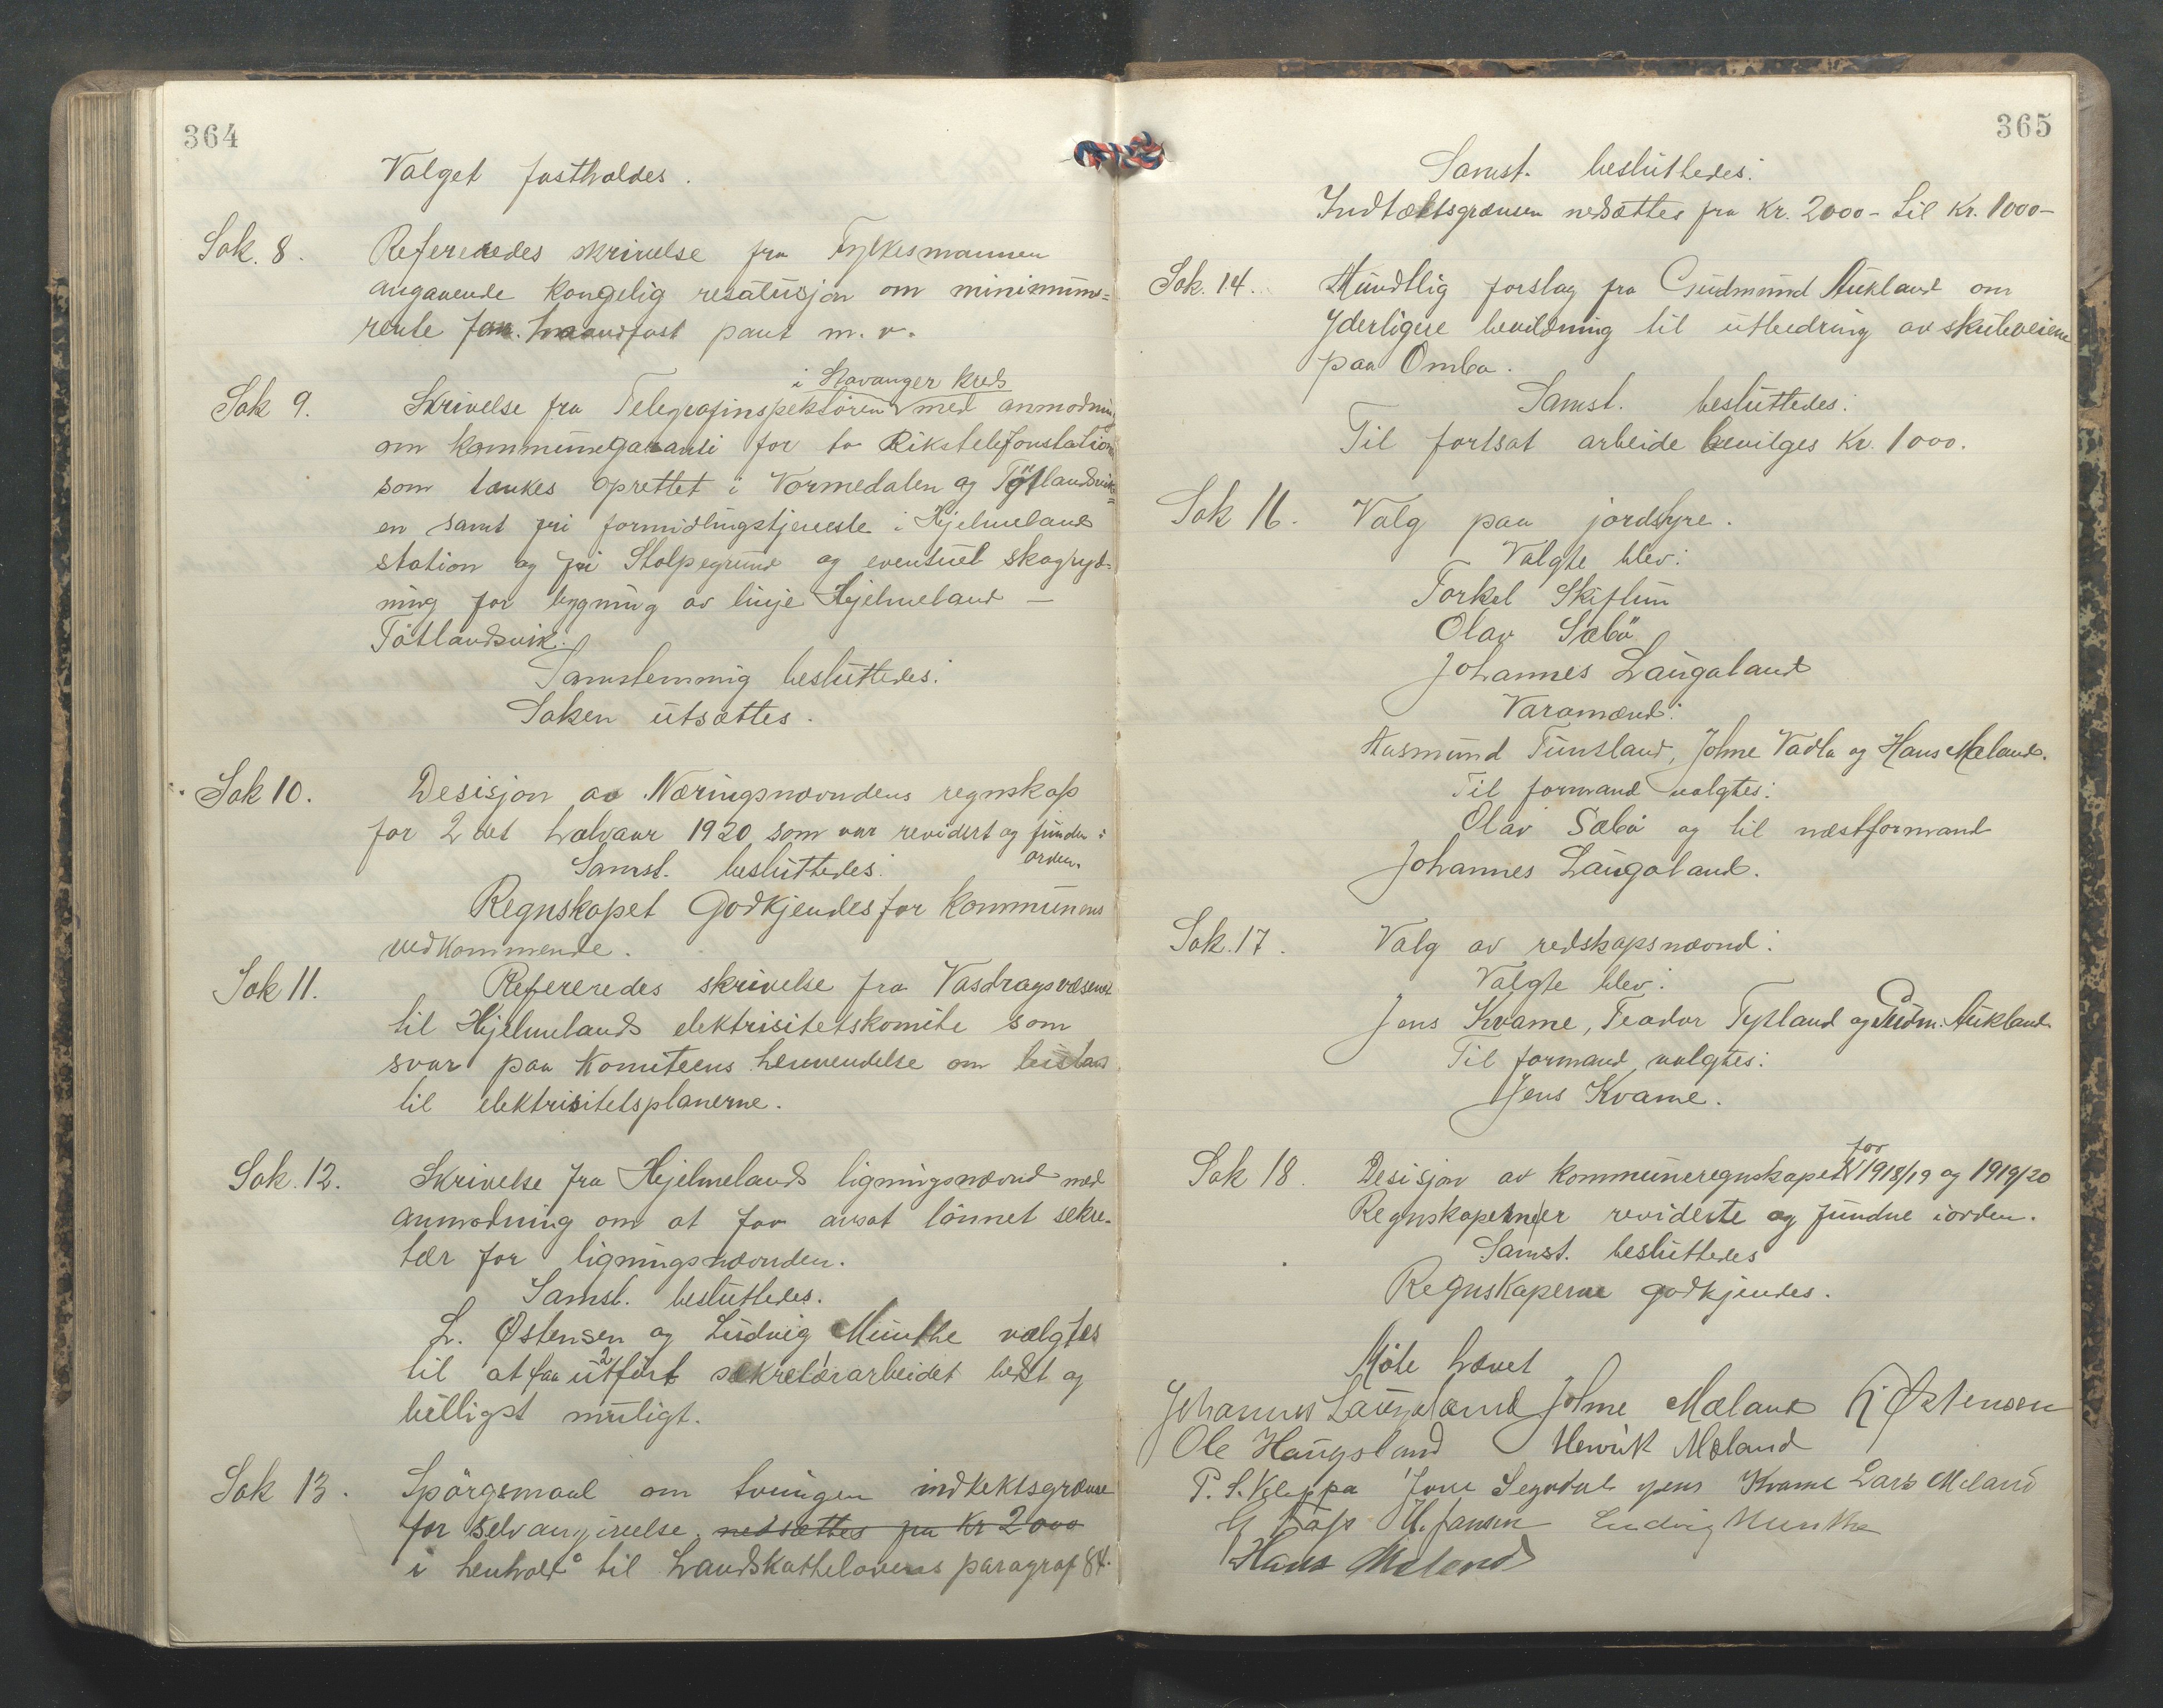 364
Valget fastholdes.
Sak. 8. Refereredes skrivelse fra Fylkesmannen
angaaende kongelig resolusjon om minimums=
rente for haandfast pant m. v.
i Stavanger kreds
Sak 9. Skrivelse fra Telegrafinspektören med anmodning
om kommunegaranti for to Rikstelefonstation
som tænkes oprettet i Vormedalen og Tötlandsvik=
en samt fri formidlingstjeneste i Hjelmeland
station og fri Stolpegrund og eventuel skogryd=
ning for bygning av linje Hjelmeland —
Tötlandsvik.
Samstemmig besluttedes:
Saken utsættes.
Sak 10. Desisjon av Næringsnævndens regnskap
for 2det halvaar 1920 som var revidert og funden i
orden.
Samst. besluttedes:
Regnskapet Godkjendes for kommunens
vedkommende.
Sak 11. Refereredes skrivelse fra Vasdragsvæsenet
til Hjelmelands elektrisitetskomite som
svar paa Komiteens henvendelse om bistand
til elektrisitetsplanerne.
Sak. 12. Skrivelse fra Hjelmelands ligningsnævnd med
anmodning om at faa ansat lönnet sekre-
tær for ligningsnævnden.
Samst. besluttedes.
L. Østensen og Ludvig Munthe vælgtes
til at faa utfört sekretærarbeidet bedst og
billigst muligt.
Sak 13. Spörgsmaal om tvungen indtektsgrænse
for selvangivelse. nedsættes fra Kr 2000
i henhold til Landskattelovens paragraf 84.
365
Samst. besluttedes:
Indtæktsgrænsen nedsættes fra Kr. 2000- til Kr. 1000-
Sak. 14. Mundtlig forslag fra Gudmund Aukland om
yderligere bevildning til utbedring av skuleveiene
paa Ombo.
Samst. besluttedes:
Til fortsat arbeide bevilges Kr. 1000.
Sak 16. Valg paa jordstyre.
Valgte blev:
Torkel Skiftun
Olav Sæbö
Johannes Laugaland
Varamænd:
Aasmund Tunsland, Johne Vadla og Hans Mæland.
Til formand valgtes:
Olav Sæbö og til næstformand
Johannes Laugaland.
Sak. 17. Valg av redskapsnævnd:
Valgte blev:
Jens Kvame, Teodor Tytland og Gudm. Aukland.
Til formand valgtes:
Jens Kvame.
for
Sak 18. Desisjon av kommuneregnskapet 1918/19 og 1919/20
Regnskaperne er reviderte og fundne iorden.
Samst. besluttedes
Regnskaperne godkjendes.
Möte hævet
Johannes Laugaland Johne Mæland L Østensen
Ole Haugsland Henrik Mæland
P. S. Kleppa Jone Segadal Jens Kvame Lars Mæland
H. Jansen Ludvig Munthe
Hans Mæland